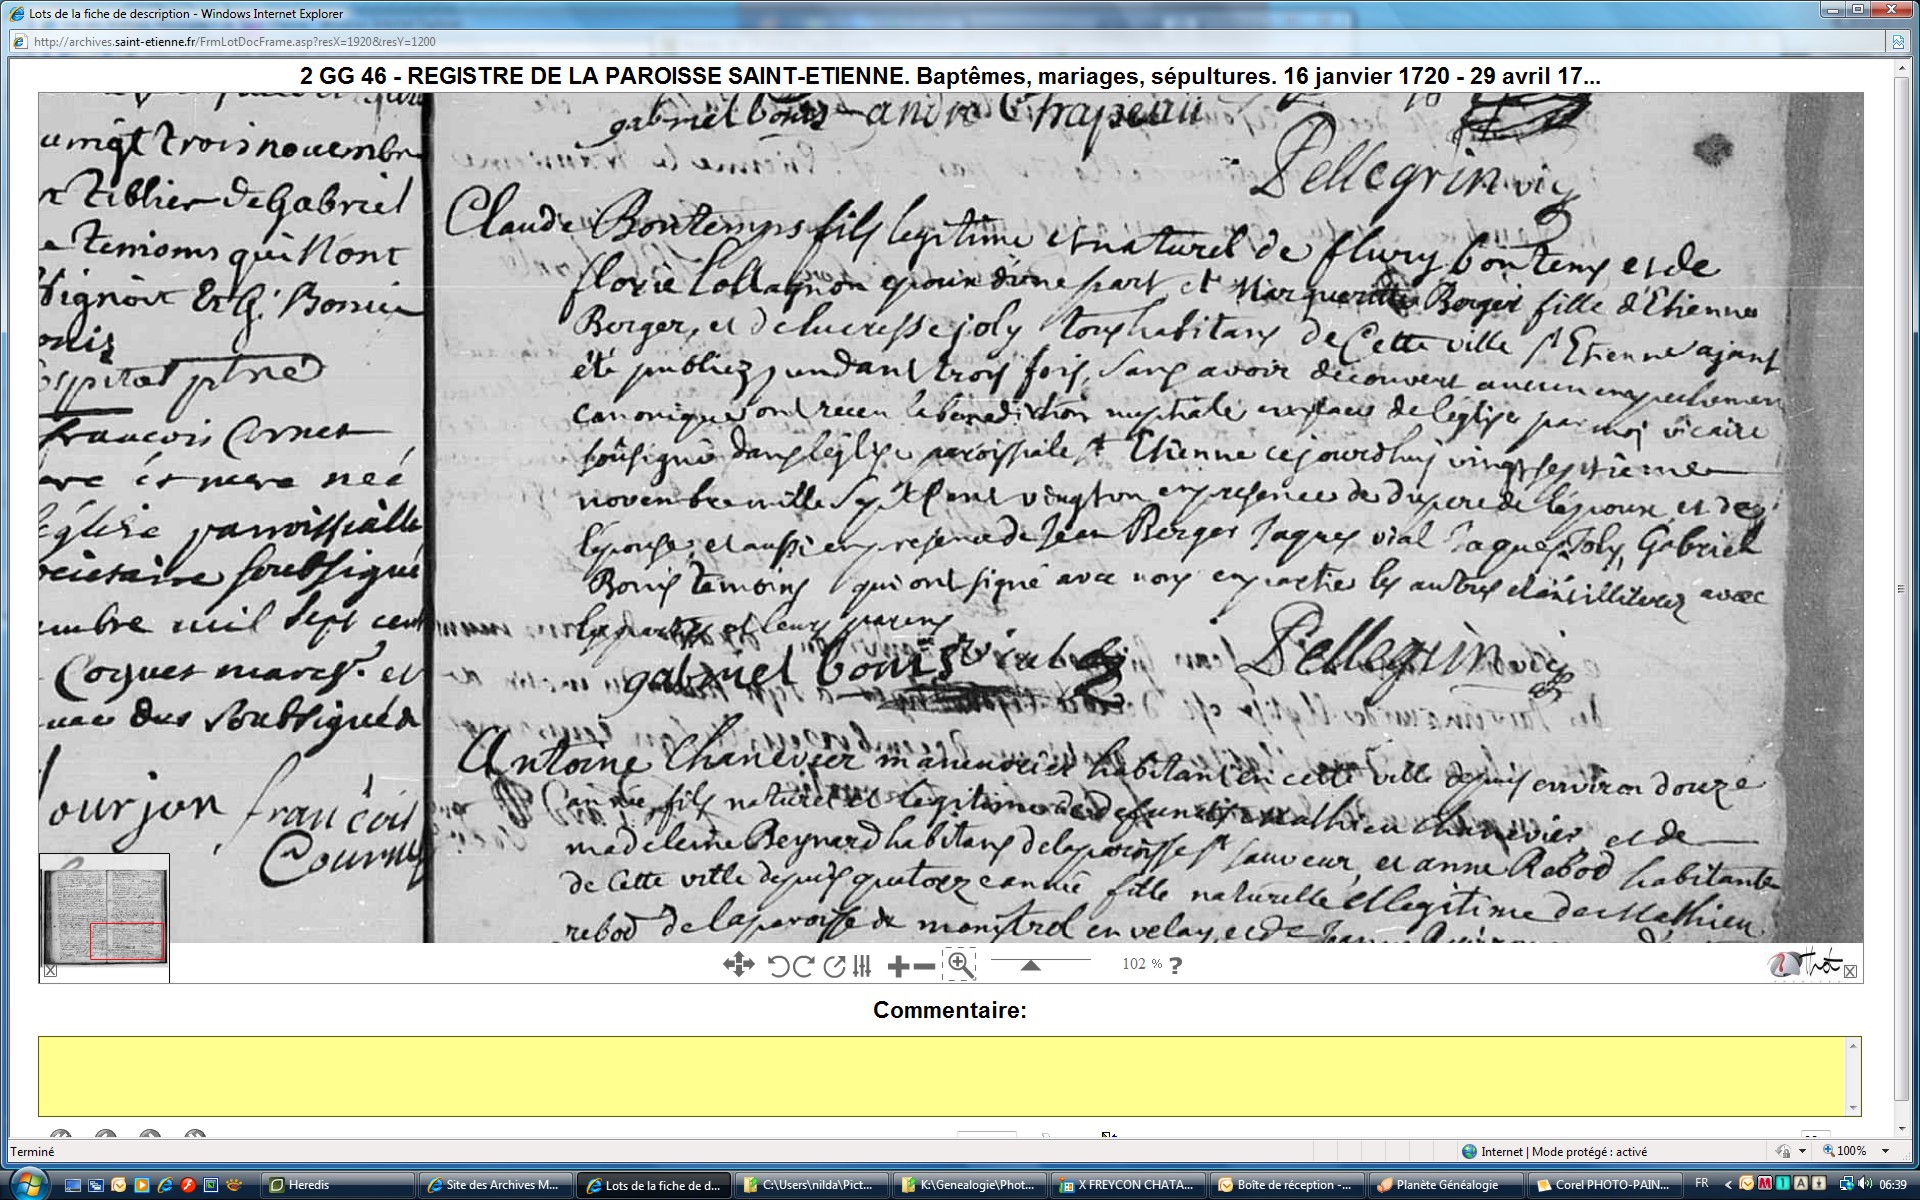 Lots de la fiche de description - Windows Internet Explorer
http://archives.saint-etienne.fr/FrmLotDocFrame.asp?resX=1920&resY=1200
2 GG 46 - REGISTRE DE LA PAROISSE SAINT-ETIENNE. Baptêmes, mariages, sépultures. 16 janvier 1720 - 29 avril 17...
vingt trois novembre
tiblier de Gabriel
temoins qui Nont
françois Cornet
pere et mere neé
église parroissialle
soubsigné
embre mil sept cent
Coquet march. et
des soubsignéz
Jourjon françois
gabriel bonis andré Chapeau
Pellegrin vic
Claude Bontemps fils legitime et naturel de flury bontems et de
florie Collagnon epoux d'une part et Margueritte Berger fille d'Etienne
Berger, et de lucresse joly tous habitans de Cette ville St Etienne ajant
été publiez pendant trois fois, sans avoir découvert aucun empechement
canonique ont receu la benediction nuptiale en face de l'église par moj vicaire
soûsigné dans l'église paroissiale St Etienne ce jourd'huj vingt septieme
novembre mille sept cent vingt un en presence du pere de l'epoux, et de
l'épouse, et aussi en presence de Jean Berger Jaques vial Jaques Joly, Gabriel
Bonis temoins qui ont signé avec nous en partie les autres etans illiterez avec
les parties et leurs parens
gabriel bonis vial
Pellegrin vic
Antoine Chanevier manuvrier habitant en cette ville depuis environ douze
année, fils naturel et legitime de defunts Mathieu Chanevier, et de
madeleine Beynard habitans de la paroisse St sauveur, et anne Rebod habitante
de Cette ville depuis quatorze année fille naturelle et legitime de Mathieu
rebod de la paroisse de monstrol en velay, et de
102 % ?
Commentaire:
Terminé
Internet | Mode protégé : activé
100%
Heredis
Site des Archives M...
Lots de la fiche de d...
C:\Users\nilda\Pict...
K:\Genealogie\Phot...
X FREYCON CHATA...
Boîte de réception -...
Planète Généalogie
Corel PHOTO-PAIN...
FR
06:39